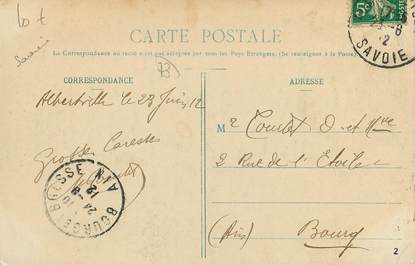 lot
Savoie
5c
CARTE POSTALE
La Correspondance au recto n'est pas acceptée par tous les Pays Étrangers. (Se renseigner à la Poste)
SAVOIE
CORRESPONDANCE
73
ADRESSE
Albertville le 23 Juin 12
Grosses Caresses
M
D. et
2 Rue de l'Etoile
(Ain) Bourg
BOURG-BRESSE AIN
24 -6
12
2